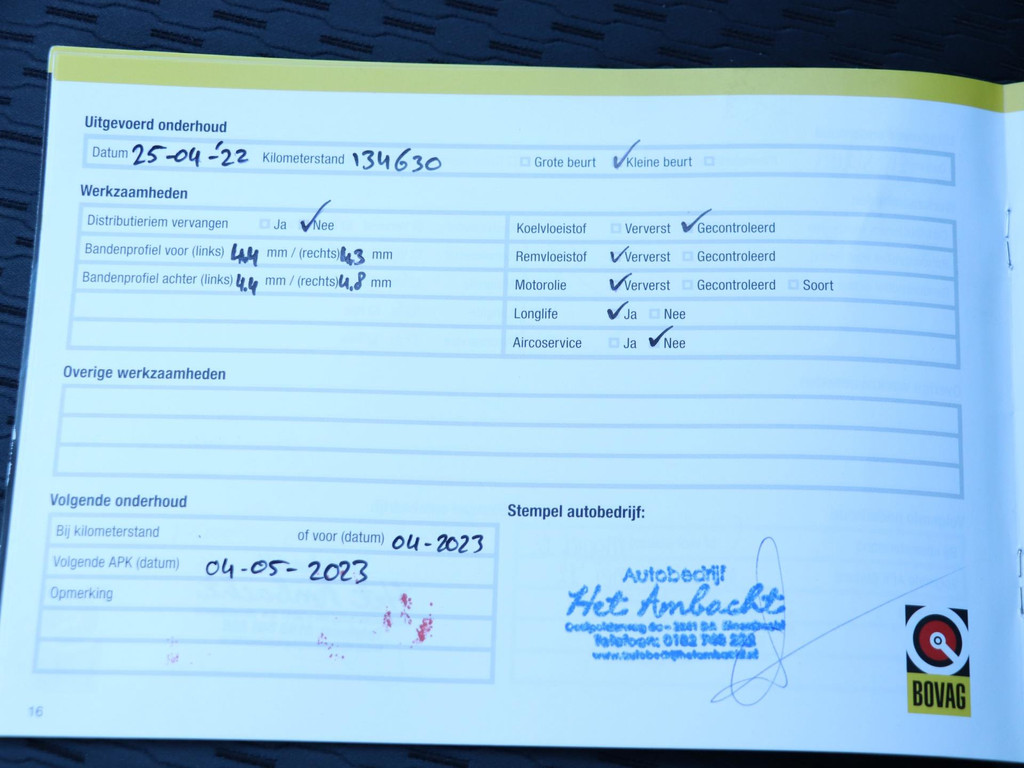 Uitgevoerd onderhoud
Datum 25-04-'22 Kilometerstand 134630 Grote beurt Kleine beurt
Werkzaamheden
Distributieriem vervangen Ja Nee
Bandenprofiel voor (links) 4.4 mm / (rechts) 4.3 mm
Bandenprofiel achter (links) 4.4 mm / (rechts) 4.8 mm
Koelvloeistof Ververst Gecontroleerd
Remvloeistof Ververst Gecontroleerd
Motorolie Ververst Gecontroleerd Soort
Longlife Ja Nee
Aircoservice Ja Nee
Overige werkzaamheden
Volgende onderhoud
Bij kilometerstand of voor (datum) 04-2023
Volgende APK (datum) 04-05-2023
Opmerking
Stempel autobedrijf:
Autobedrijf
Het Ambacht
Telefoon: 0182
www.autobedrijfhetambacht.nl
BOVAG
16